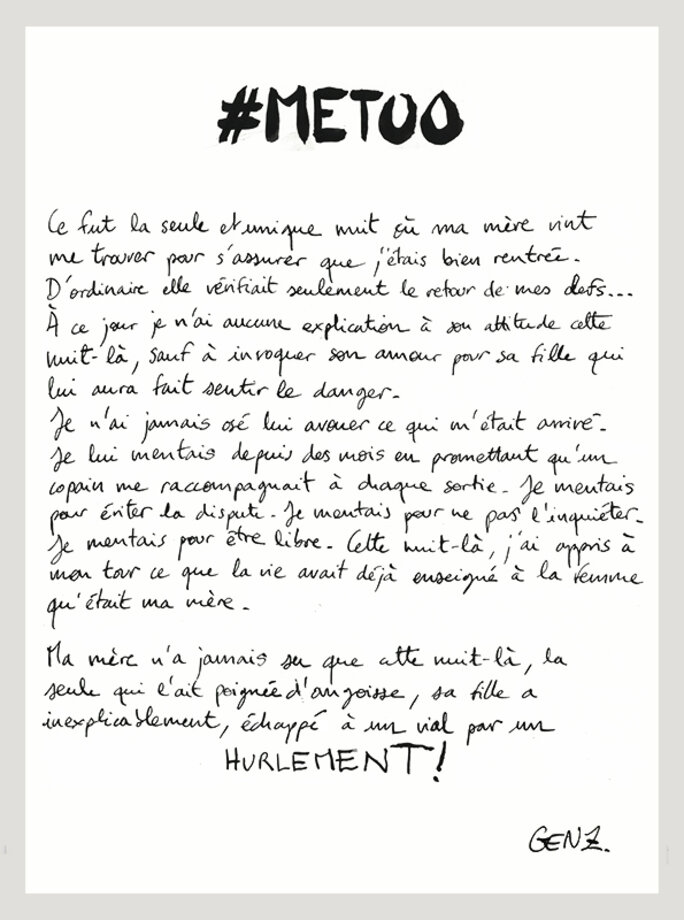 #METOO
Ce fut la seule et unique nuit où ma mère vint
me trouver pour s'assurer que j'étais bien rentrée.
D'ordinaire elle vérifiait seulement le retour de mes clefs...
À ce jour je n'ai aucune explication à son attitude cette
nuit-là, sauf à invoquer son amour pour sa fille qui
lui aura fait sentir le danger.
Je n'ai jamais osé lui avouer ce qui m'était arrivé.
Je lui mentais depuis des mois en promettant qu'un
copain me raccompagnait à chaque sortie. Je mentais
pour éviter la dispute. Je mentais pour ne pas l'inquiéter.
Je mentais pour être libre. Cette nuit-là, j'ai appris à
mon tour ce que la vie avait déjà enseigné à la femme
qu'était ma mère.
Ma mère n'a jamais su que cette nuit-là, la
seule qui l'ait poignée d'angoisse, sa fille a
inexplicablement, échappé à un viol par un
HURLEMENT!
GENZ.